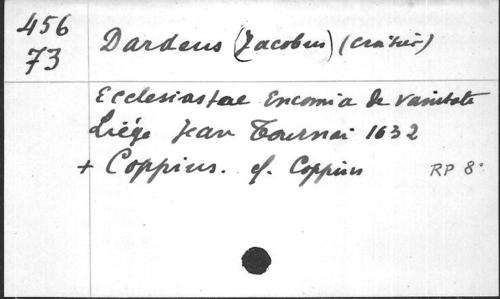 456 Dardeus (Jacobus) (croisier)
73
Ecclesiastae Encomia de vanitate
Liége Jean Tournai 1632
+ Coppius. cf. Coppius RP 8°